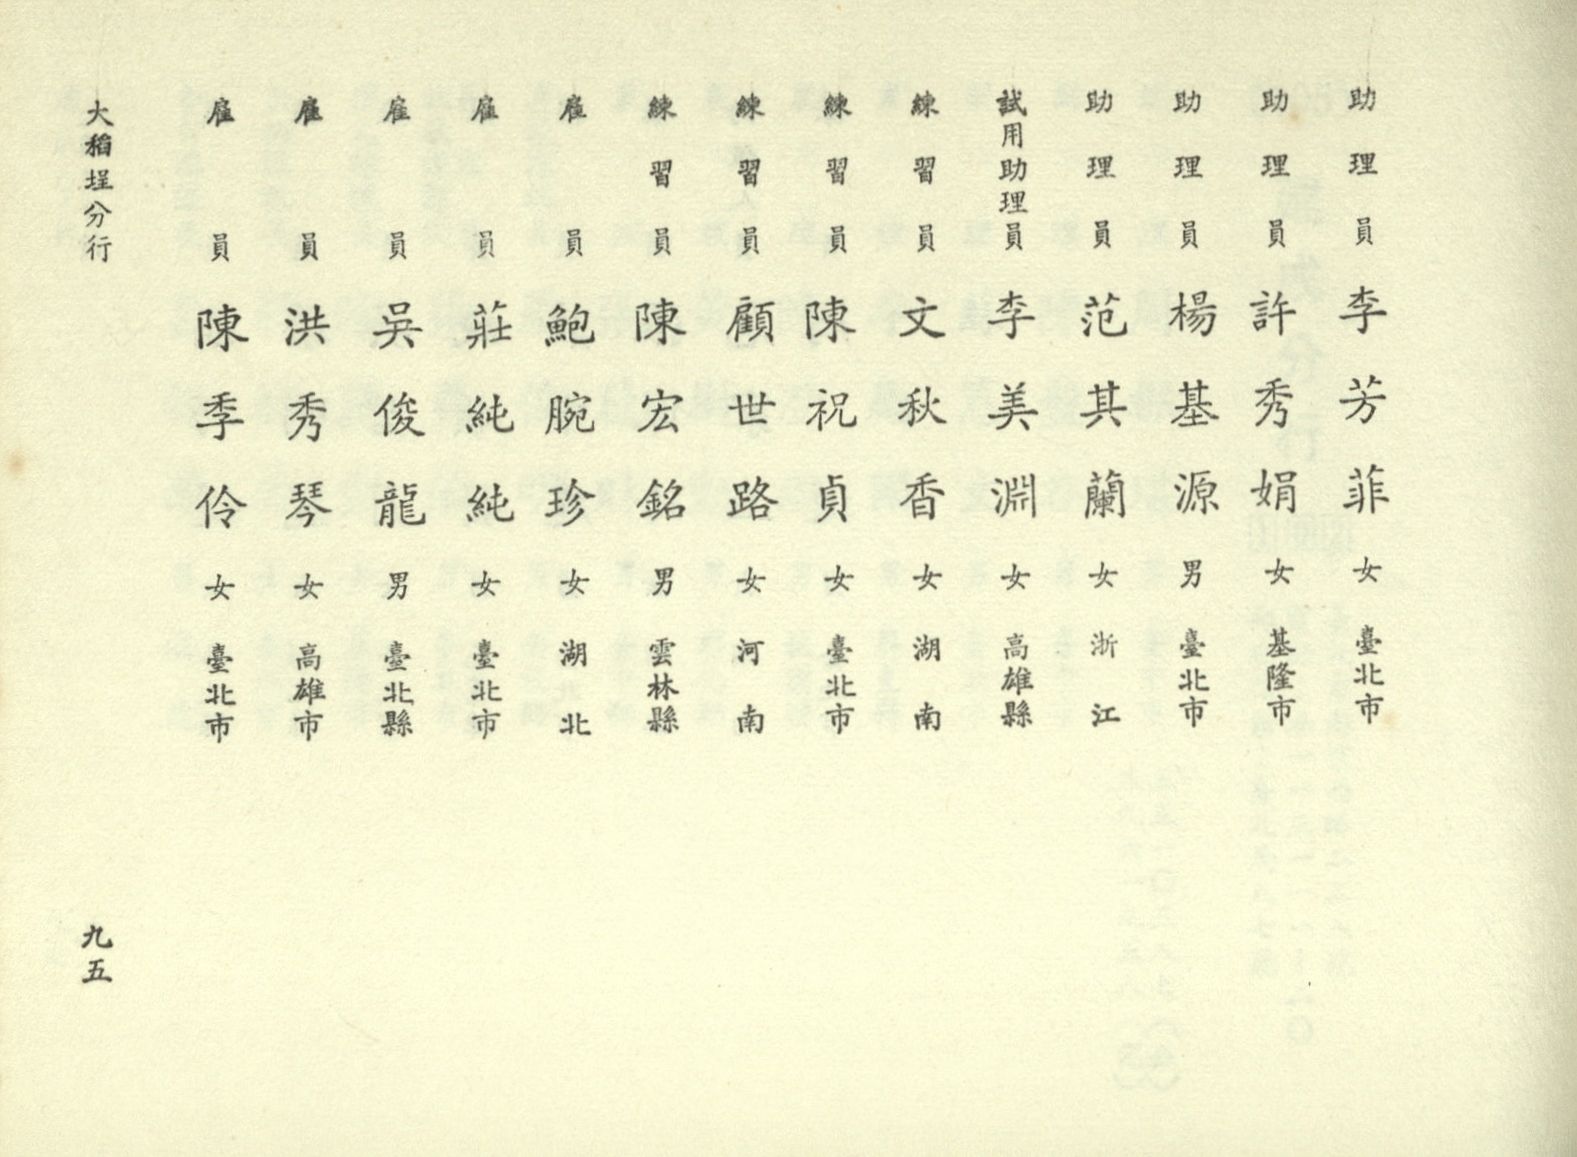 助理員 李芳菲 女 臺北市
助理員 許秀娟 女 基隆市
助理員 楊基源 男 臺北市
助理員 范其蘭 女 浙江
試用助理員 李美淵 女 高雄縣
練習員 文秋香 女 湖南
練習員 陳祝貞 女 臺北市
練習員 顧世路 女 河南
練習員 陳宏銘 男 雲林縣
雇員 鮑腕珍 女 湖北
雇員 莊純純 女 臺北市
雇員 吳俊龍 男 臺北縣
雇員 洪秀琴 女 高雄市
雇員 陳季伶 女 臺北市
大稻埕分行
九五